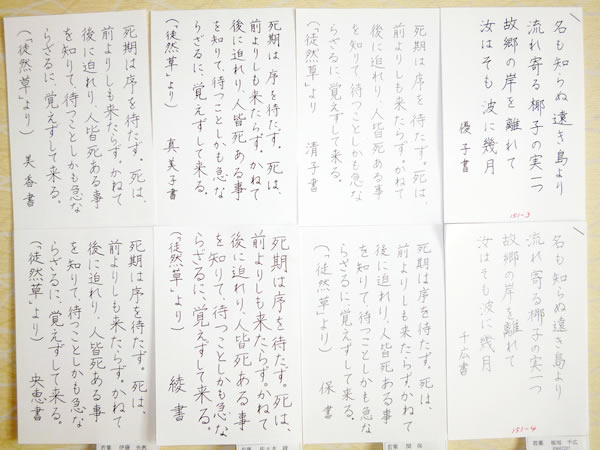 名も知らぬ遠き島より
流れ寄る椰子の実一つ
故郷の岸を離れて
汝はそも波に幾月
優子書
151-3
死期は序を待たず。死は、
前よりしも来たらず。かねて
後に迫れり。人皆死ある事
を知りて、待つことしかも急な
らざるに、覚えずして来る。
(「徒然草」より)
清子書
死期は序を待たず。死は、
前よりしも来たらず。かねて
後に迫れり。人皆死ある事
を知りて、待つことしかも急な
らざるに、覚えずして来る。
(「徒然草」より)
真美子書
死期は序を待たず。死は、
前よりしも来たらず。かねて
後に迫れり。人皆死ある事
を知りて、待つことしかも急な
らざるに、覚えずして来る。
(「徒然草」より)
美香書
名も知らぬ遠き島より
流れ寄る椰子の実一つ
故郷の岸を離れて
汝はそも波に幾月
千広書
151-4
若葉 千広
死期は序を待たず。死は、
前よりしも来たらず。かねて
後に迫れり。人皆死ある事
を知りて、待つことしかも急な
らざるに、覚えずして来る。
(「徒然草」より)
保書
若葉
死期は序を待たず。死は、
前よりしも来たらず。かねて
後に迫れり。人皆死ある事
を知りて、待つことしかも急な
らざるに、覚えずして来る。
(「徒然草」より)
綾書
死期は序を待たず。死は、
前よりしも来たらず。かねて
後に迫れり。人皆死ある事
を知りて、待つことしかも急な
らざるに、覚えずして来る。
(「徒然草」より)
央恵書
若葉 伊藤